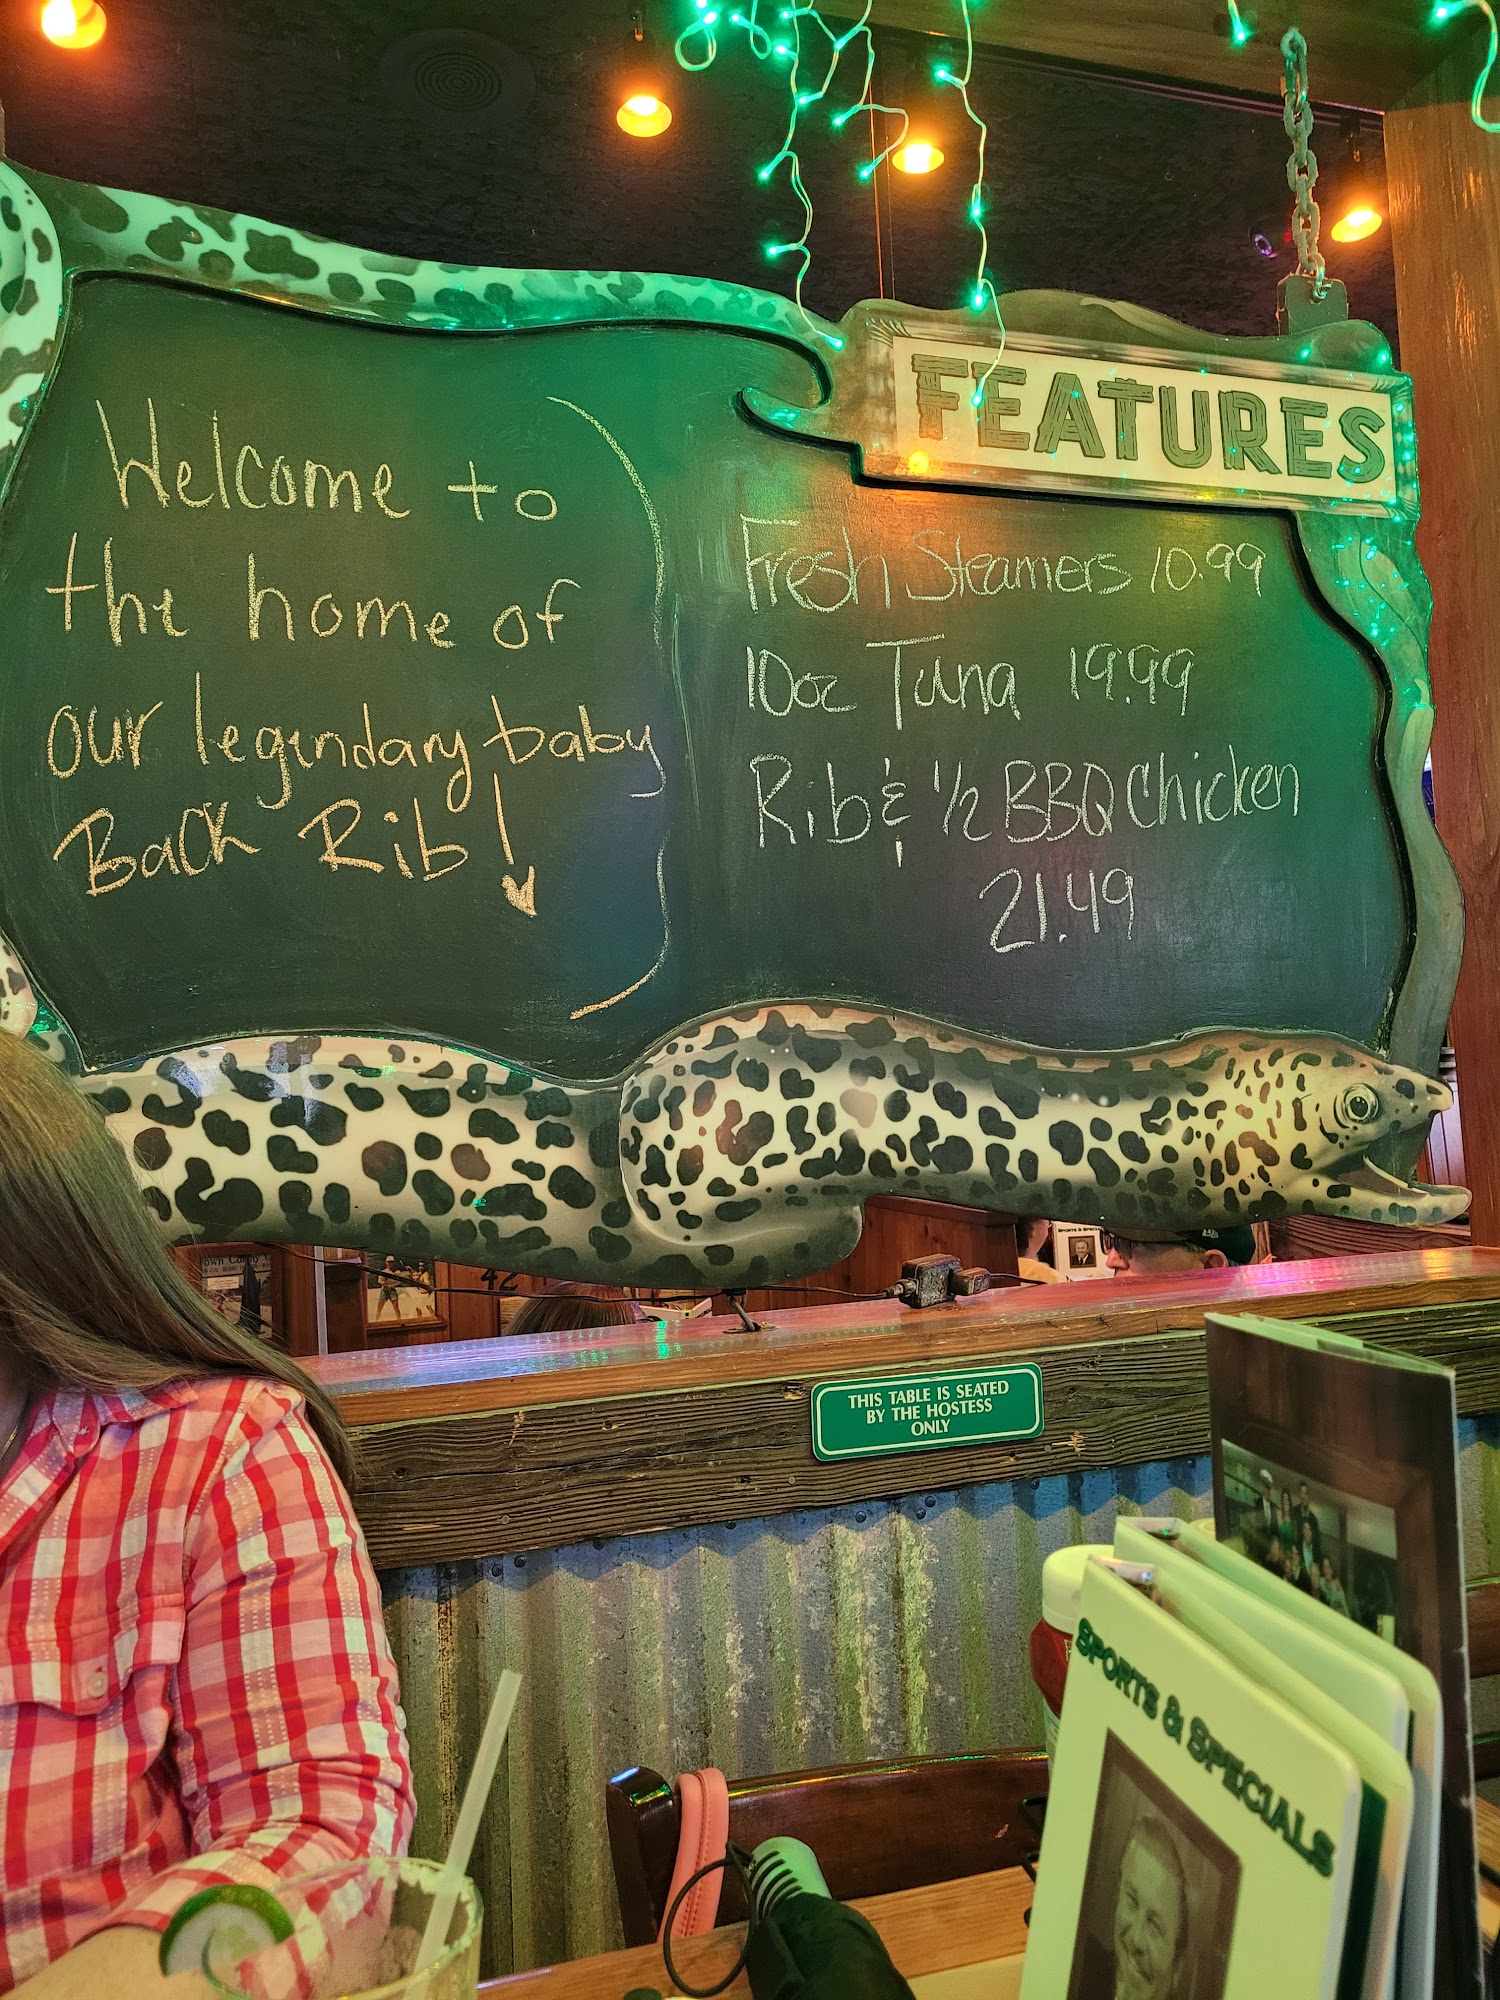 Welcome to
the home of
our legendary baby
Back Rib!
FEATURES
Fresh Steamers 10.99
10oz Tuna 19.99
Rib & 1/2 BBQ Chicken
21.49
42
SPORTS & SPECIALS
THIS TABLE IS SEATED
BY THE HOSTESS
ONLY